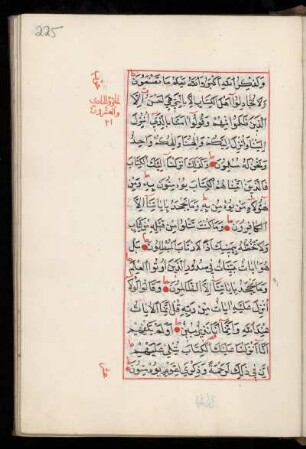 225
الجزؤ الحادي
والعشرون
٢١
وَلَذِكْرُ اللهِ اَكْبَرُ وَاللهُ يَعْلَمُ مَا تَصْنَعُونَ
وَلَا تُجَادِلُوا اَهْلَ الْكِتَابِ اِلَّا بِالَّتِي هِيَ اَحْسَنُ اِلَّا
الَّذِينَ ظَلَمُوا مِنْهُمْ وَقُولُوا اٰمَنَّا بِالَّذِي اُنْزِلَ
اِلَيْنَا وَاُنْزِلَ اِلَيْكُمْ وَاِلٰهُنَا وَاِلٰهُكُمْ وَاحِدٌ
وَنَحْنُ لَهُ مُسْلِمُونَ وَكَذٰلِكَ اَنْزَلْنَا اِلَيْكَ الْكِتَابَ
فَالَّذِينَ اٰتَيْنَاهُمُ الْكِتَابَ يُؤْمِنُونَ بِهِ وَمِنْ
هٰؤُلَاءِ مَنْ يُؤْمِنُ بِهِ وَمَا يَجْحَدُ بِاٰيَاتِنَا اِلَّا
الْكَافِرُونَ وَمَا كُنْتَ تَتْلُوا مِنْ قَبْلِهِ مِنْ كِتَابٍ
وَلَا تَخُطُّهُ بِيَمِينِكَ اِذًا لَارْتَابَ الْمُبْطِلُونَ بَلْ
هُوَ اٰيَاتٌ بَيِّنَاتٌ فِي صُدُورِ الَّذِينَ اُوتُوا الْعِلْمَ
وَمَا يَجْحَدُ بِاٰيَاتِنَا اِلَّا الظَّالِمُونَ وَقَالُوا لَوْلَا
اُنْزِلَ عَلَيْهِ اٰيَاتٌ مِنْ رَبِّهِ قُلْ اِنَّمَا الْاٰيَاتُ
عِنْدَ اللهِ وَاِنَّمَا اَنَا نَذِيرٌ مُبِينٌ اَوَلَمْ يَكْفِهِمْ
اَنَّا اَنْزَلْنَا عَلَيْكَ الْكِتَابَ يُتْلٰى عَلَيْهِمْ
اِنَّ فِي ذٰلِكَ لَرَحْمَةً وَذِكْرٰى لِقَوْمٍ يُؤْمِنُونَ